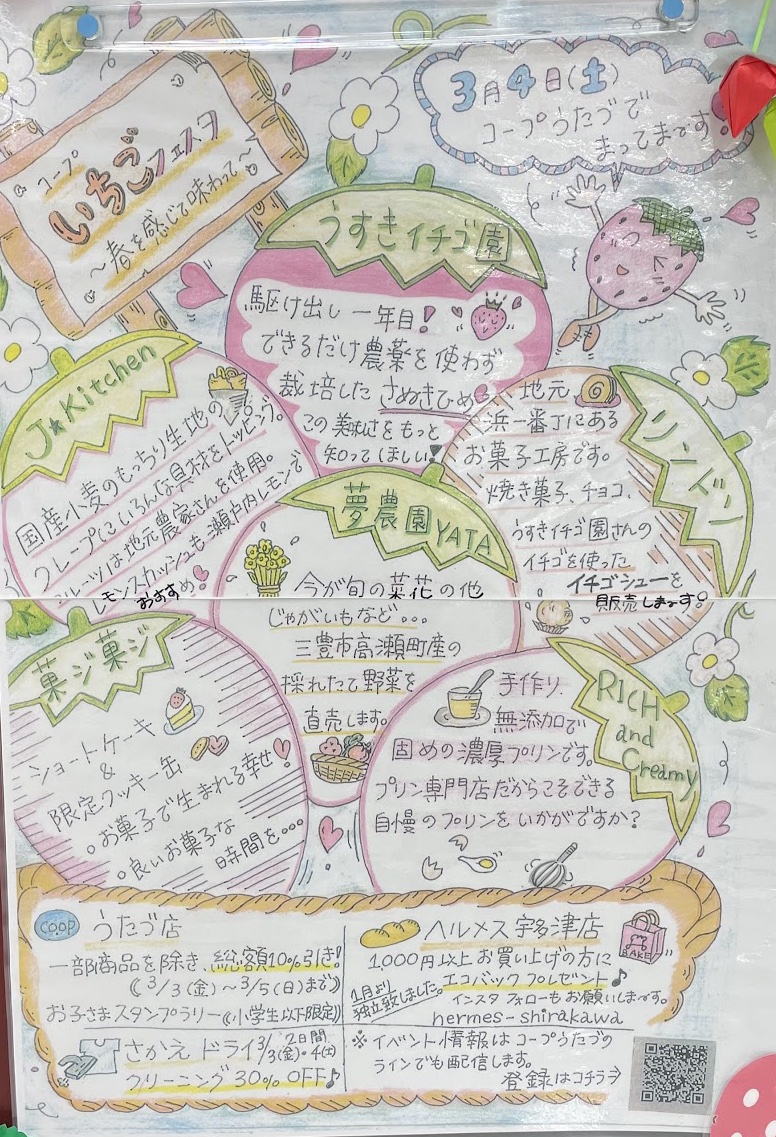 コープ
いちごフェスタ
～春を感じて味わって～
3月4日(土)
コープうたづで
まってまます!
うすきイチゴ園
駆け出し一年目!
できるだけ農薬を使わず
栽培した さぬきひめ
この美味さをもっと
知ってほしい!
J★Kitchen
国産小麦のもっちり生地の
クレープにいろんな具材をトッピング。
フルーツは地元農家さんを使用。
レモンスカッシュも瀬戸内レモンで
おすすめ
リンドン
地元
浜一番丁にある
お菓子工房です。
焼き菓子、チョコ、
うすきイチゴ園さんの
イチゴを使った
イチゴシューを
販売しまーす!
夢農園YATA
今が旬の菜花の他
じゃがいもなど...
三豊市高瀬町産の
採れたて野菜を
直売します。
菓ジ菓ジ
ショートケーキ
&
限定クッキー缶
。お菓子で生まれる幸せ!
。良いお菓子な
時間を...
RICH
and
Creamy
手作り
無添加で
固めの濃厚プリンです。
プリン専門店だからこそできる
自慢のプリンをいかがですか?
COOP うたづ店
一部商品を除き、総額10%引き!
《3/3(金)～3/5(日)まで》
お子さまスタンプラリー《小学生以下限定》
ヘルメス宇多津店
BAKE
1000円以上お買い上げの方に
エコバックプレゼント♪
1月より
独立致しました。
インスタフォローもお願いしまーす。
hermes-shirakawa
さかえ ドライ 3/3(金)・4(土)
2日間
クリーニング30%OFF♪
※イベント情報はコープうたづの
ラインでも配信します。
登録はコチラ→